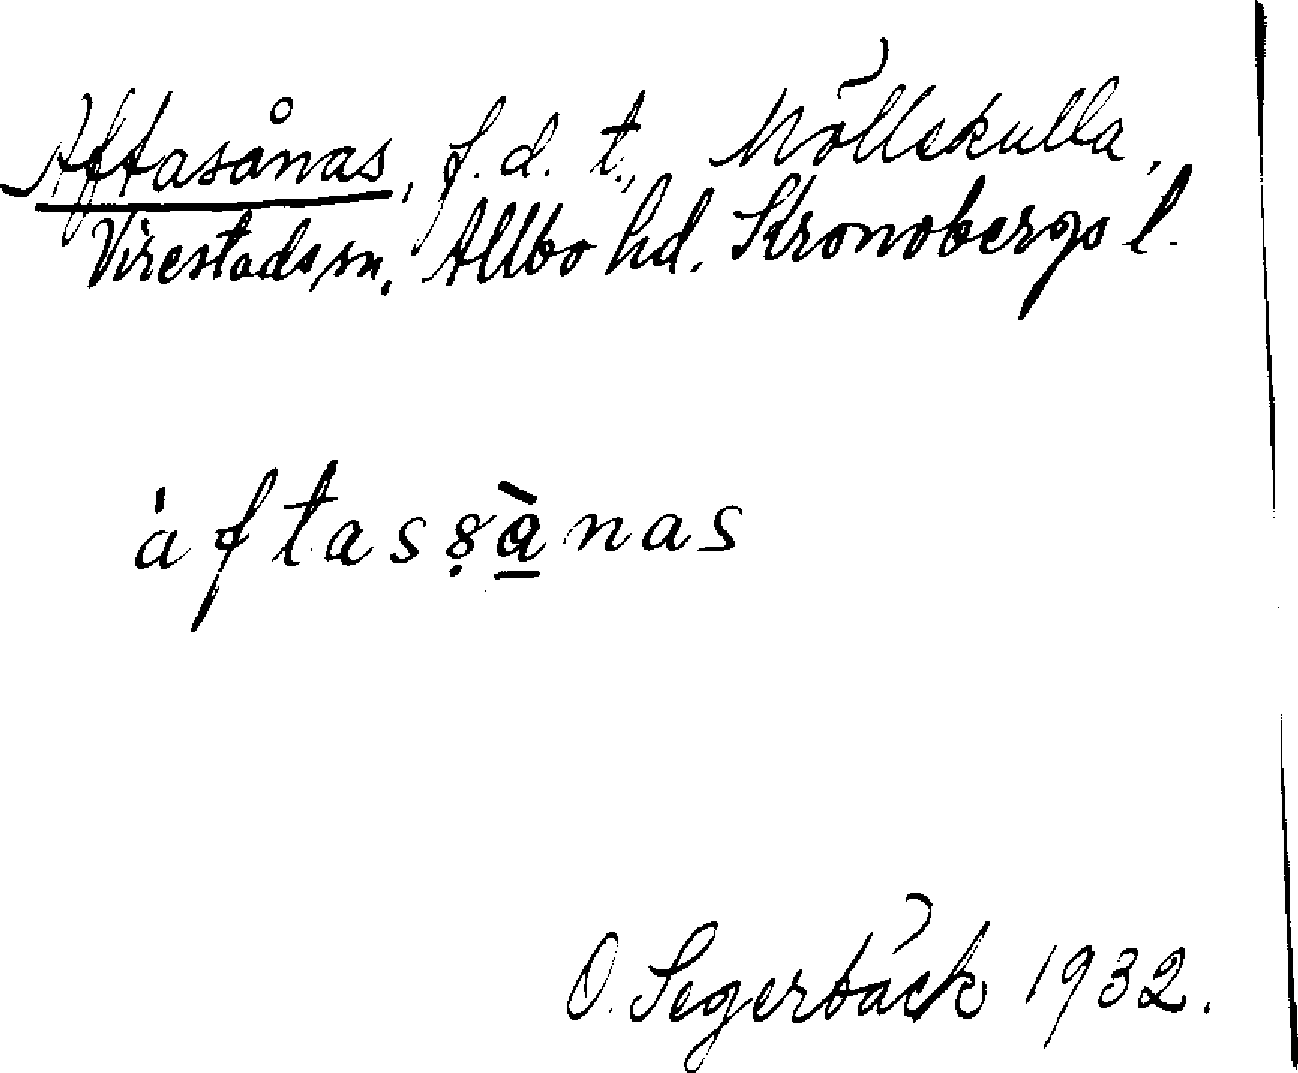 Aftasånas, f.d. t., Möllekulla,
Virestads sn, Allbo hd. Kronobergs l.
àftassạ̀nas
O. Segerbäck 1932.